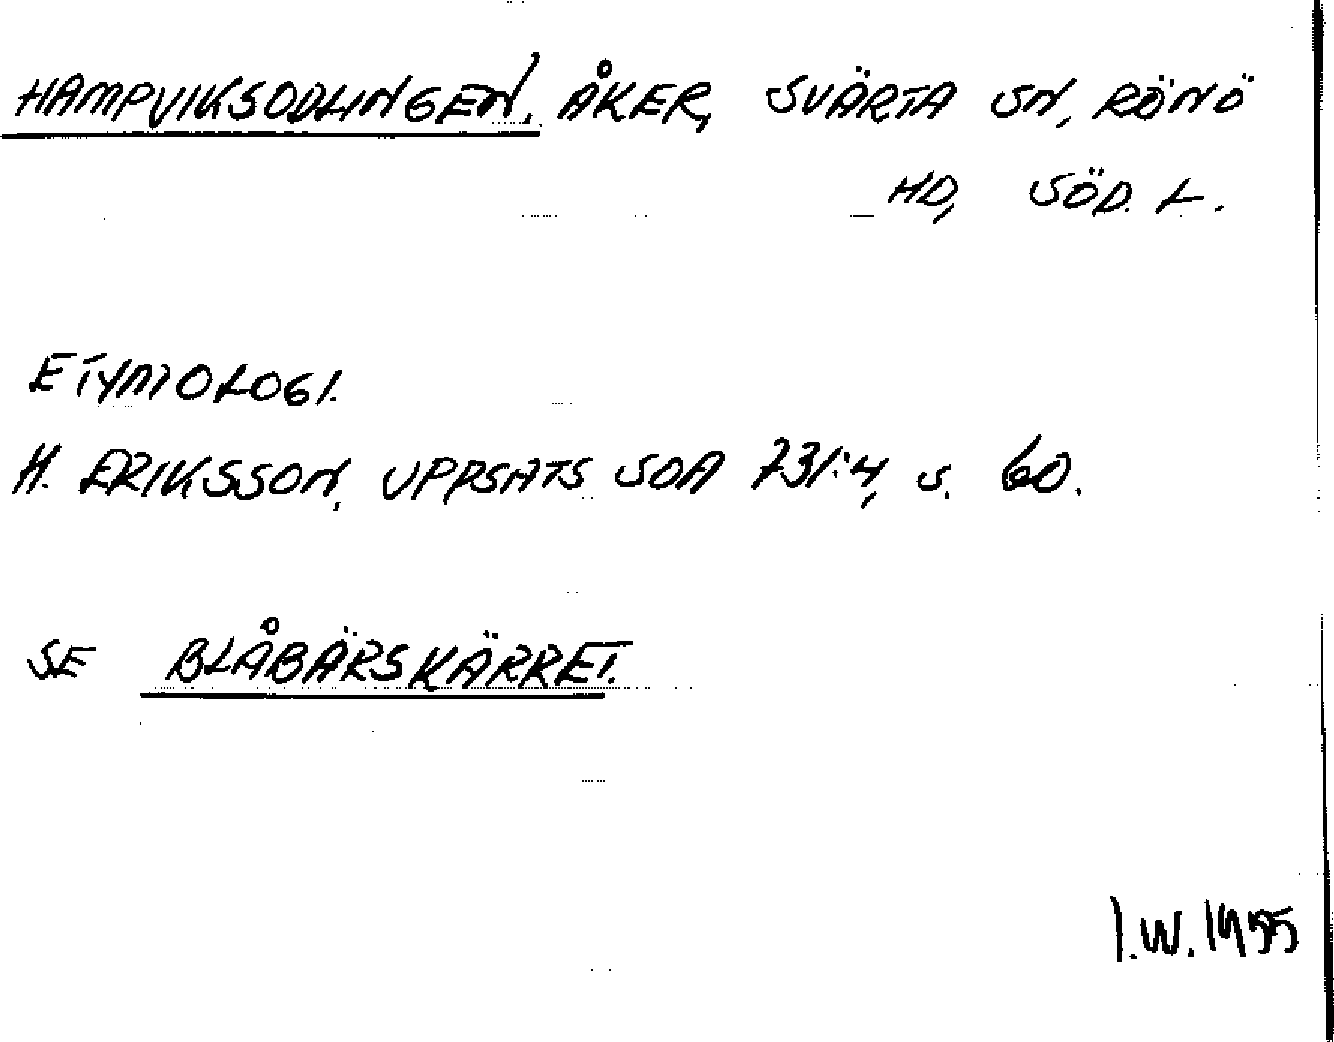 HAMPVIKSODLINGEN, ÅKER, SVÄRTA SN, RÖNÖ
HD, SÖD. L.
ETYMOLOGI.
H. ERIKSSON, UPPSATS SOA 731:4, S. 60.
SE BLÅBÄRSKÄRRET.
I.W. 1955